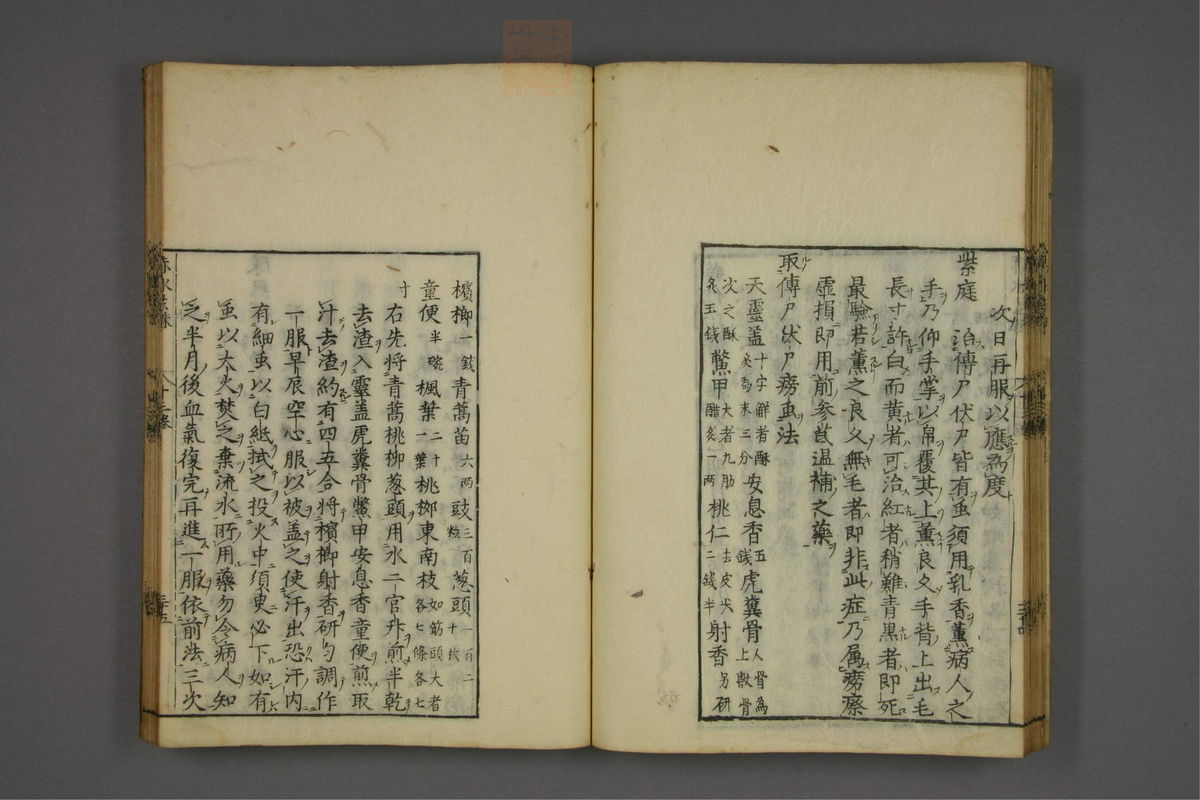 次日再服以應為度
紫庭 治傳尸伏尸皆有虫須用乳香薰病人之
手乃仰手掌以帛覆其上薰良久手背上出毛
長寸許白而黄者可治紅者稍難青黒者即死
最驗若薰之良久無毛者即非此症乃属癆瘵
虚損即用前参芪温補之藥
取傳尸伏尸癆虫法
天靈盖十字解者酥炙為末三分安息香五錢虎糞骨人骨為上獸骨
次之酥炙五錢鱉甲大者九肋醋炙一两桃仁去皮尖二錢半射香另研
檳榔一錢青蒿苗六两豉三百粒葱頭一百二十枚
童便半碗楓葉二十一葉桃栁東南枝如筯頭大者各七條各七
寸
右先将青蒿桃柳葱頭用水二官升煎半乾
去渣入靈盖虎糞骨鱉甲安息香童便煎取
汁去渣約有四五合将檳榔射香研匀調作
一服早辰空心服以被盖之使汗出恐汗内
有細虫以白紙拭之投火中須臾必下如有
虫以大火焚之棄流水所用藥勿令病人知
之半月後血氣復完再進一服依前法三次